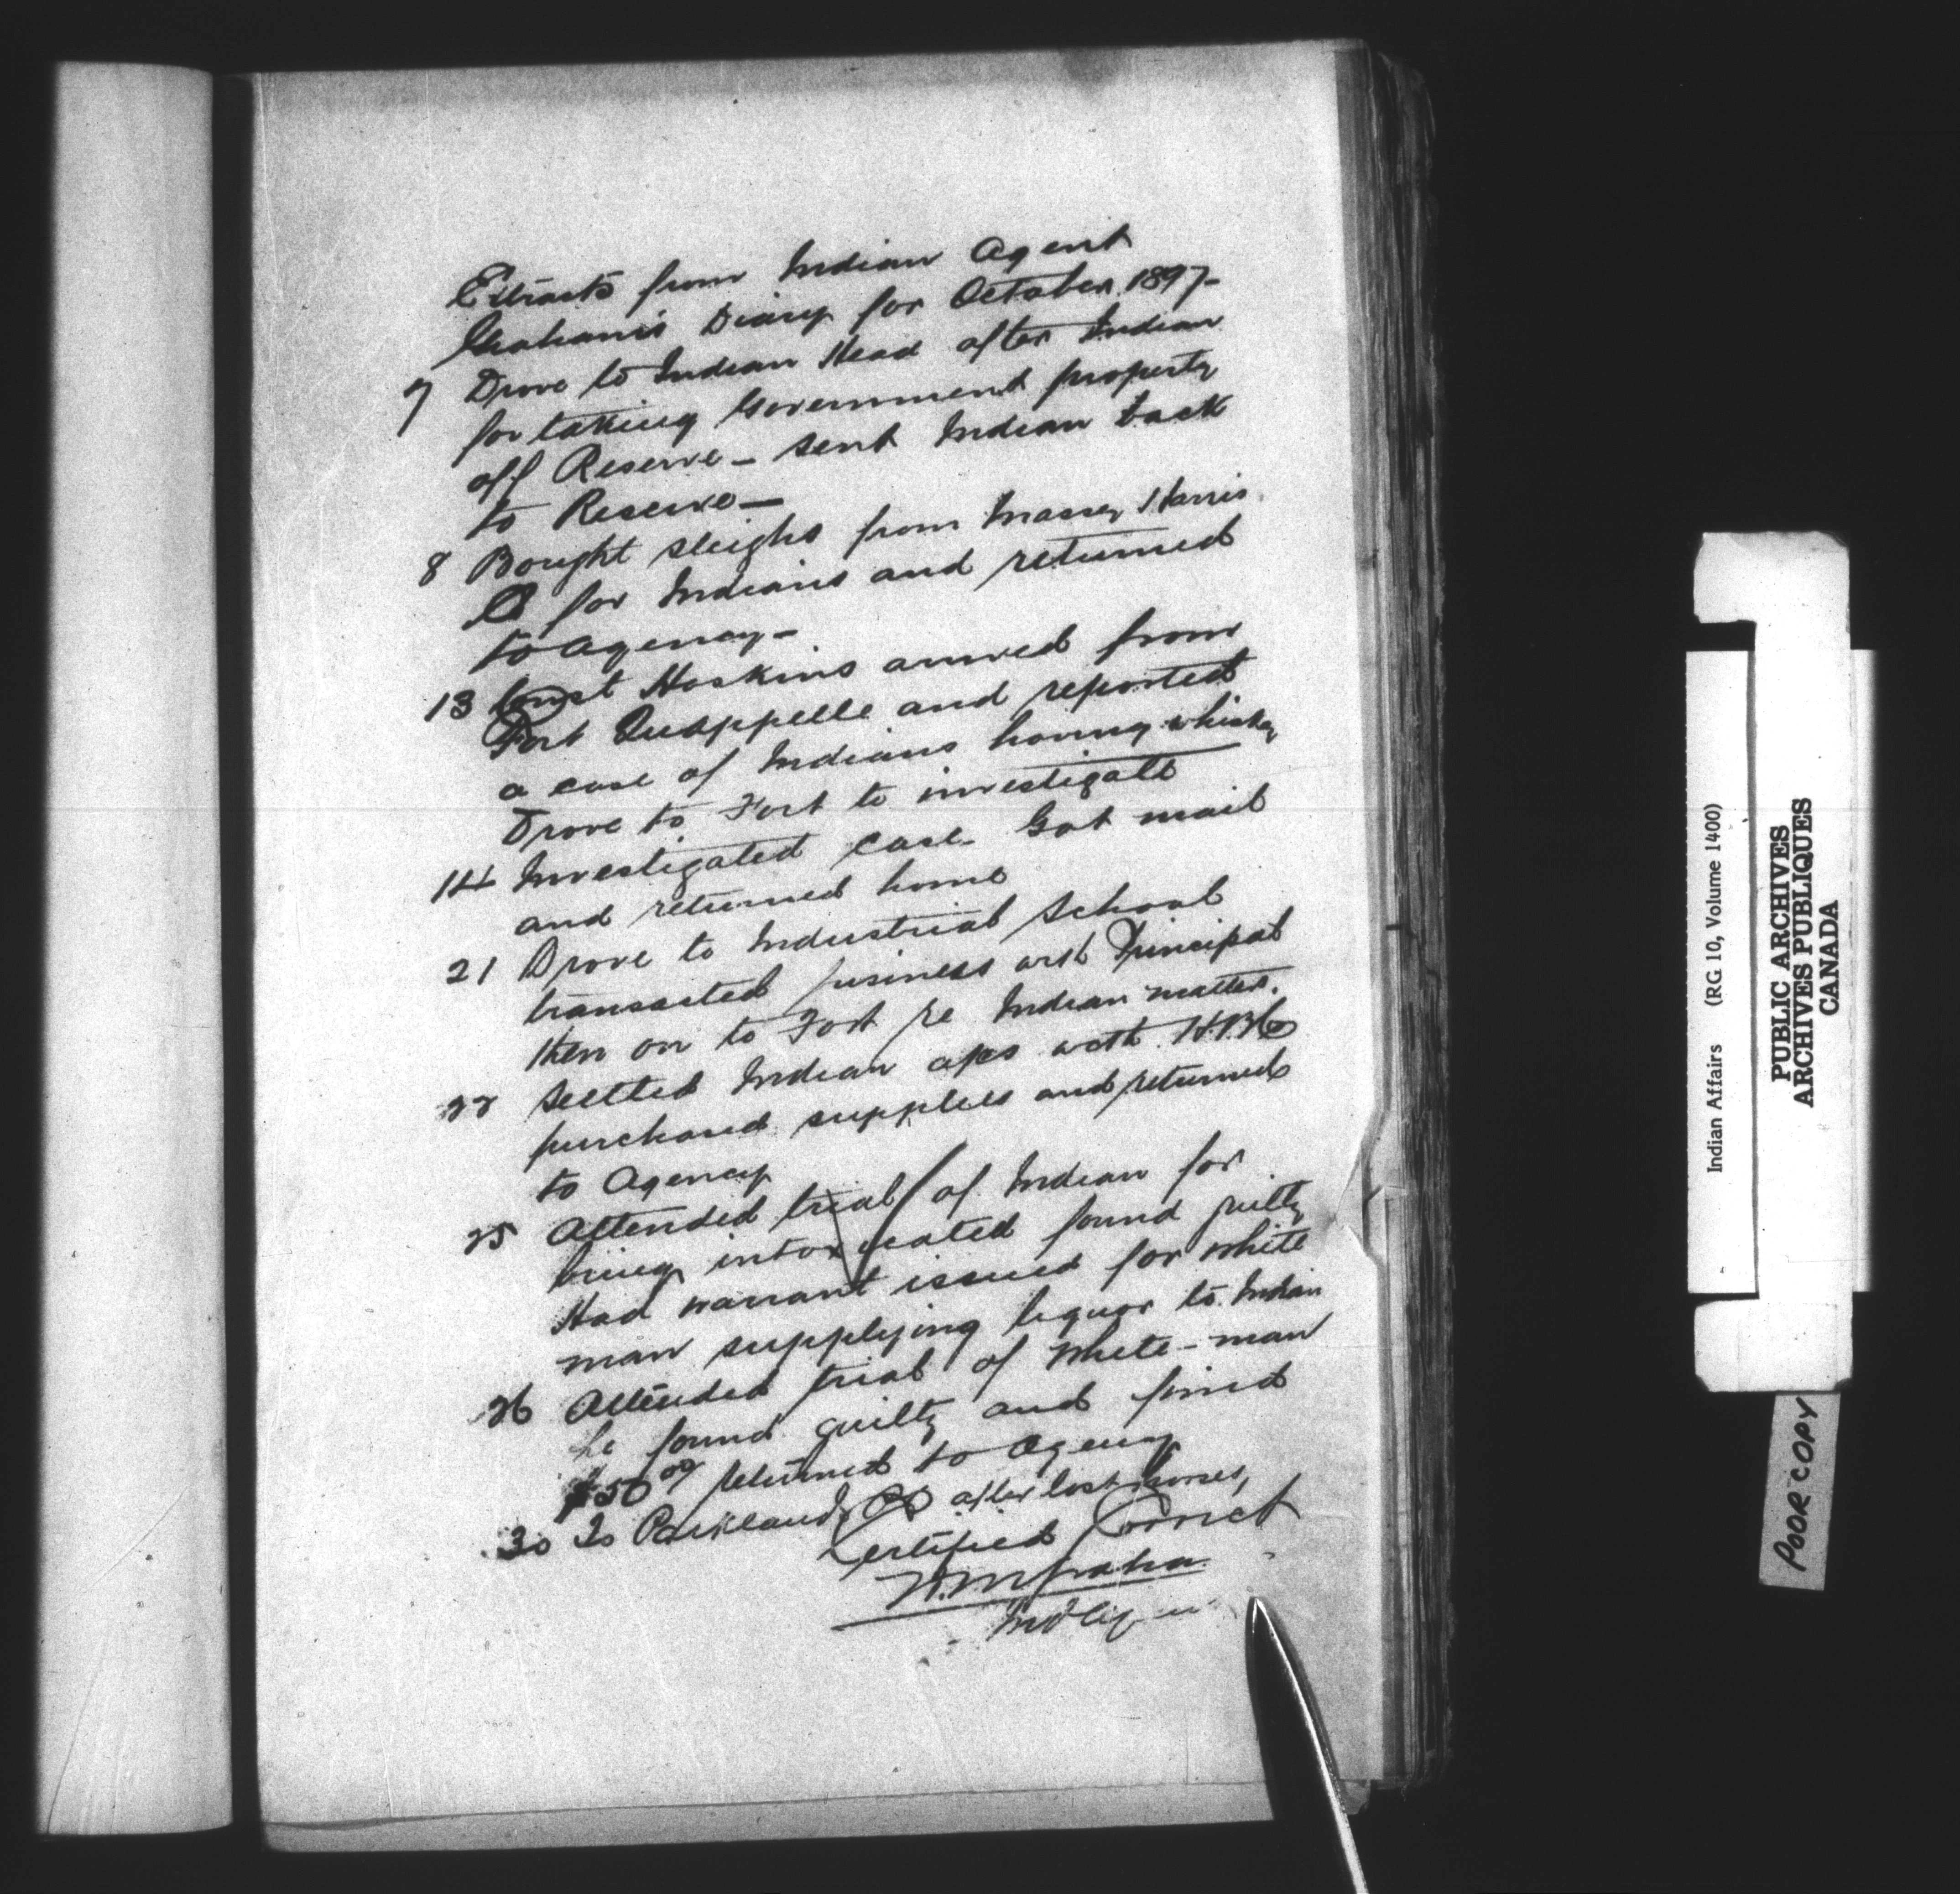 Extracts from Indian Agent
Graham's Diary for October 1897-
7 Drove to Indian Head after Indian
for taking Government property
off Reserve - sent Indian back
to Reserve -
8 Bought sleighs from Massey Harris
Co for Indians and returned
to Agency -
13 Const Hoskins arrived from
Fort Qu'Appelle and reported
a case of Indians having whisky
Drove to Fort to investigate
14 Investigated case. Got mail
and returned home
21 Drove to Industrial School
transacted business with Principal
then on to Fort re Indian matter.
22 Settled Indian a/cs with H.B.Co
purchased supplies and returned
to Agency
25 Attended trial of Indian for
being intoxicated found guilty
Had warrant issued for white
man supplying liquor to Indian
26 Attended trial of White-man
he found guilty and fined
$50 00/ returned to Agency
30 To Parkland after lost horses,
Certified Correct
W.M. Graham
Ind Agent
Indian Affairs (RG 10, Volume 1400)
PUBLIC ARCHIVES
ARCHIVES PUBLIQUES
CANADA
POOR COPY